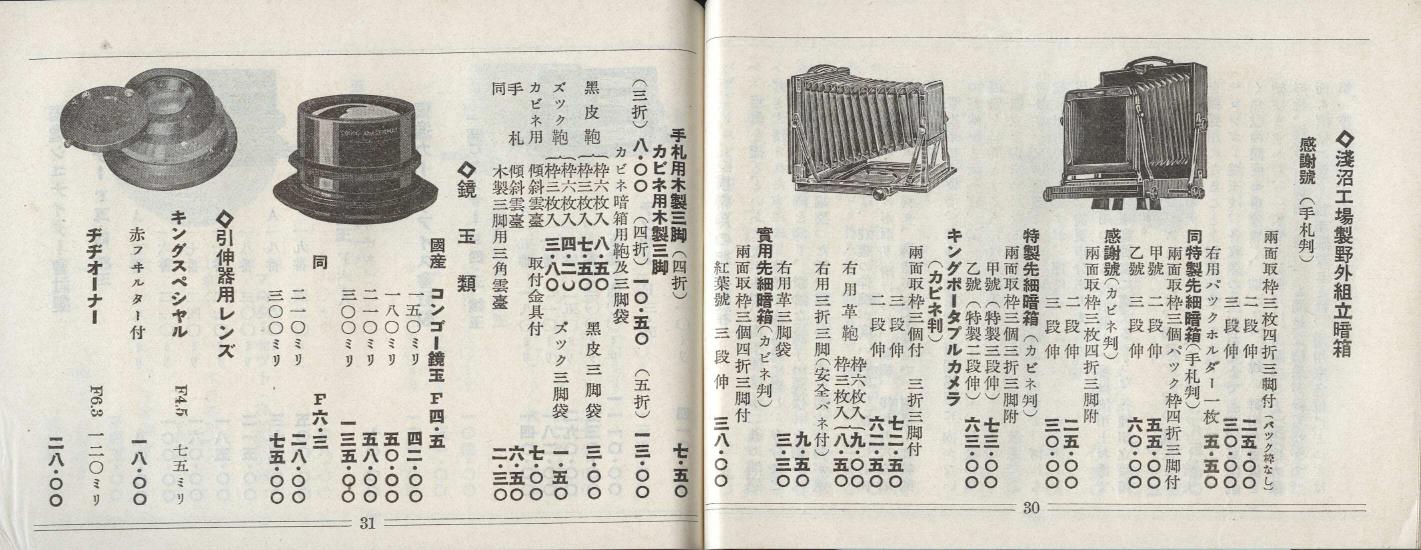 ◇淺沼工場製野外組立暗箱
感謝號（手札判）
兩面取枠三枚四折三脚付（パック枠なし）
二段伸　二五・〇〇
三段伸　三〇・〇〇
右用パックホルダー一枚　五・五〇
同特製先細暗箱（手札判）
兩面取枠三個パック枠四折三脚付
甲號　二段伸　五五・〇〇
乙號　三段伸　六〇・〇〇
感謝號（カビネ判）
兩面取枠三枚四折三脚附
二段伸　二五・〇〇
三段伸　三〇・〇〇
特製先細暗箱（カビネ判）
兩面取枠三個三折三脚附
甲號（特製三段伸）　七三・〇〇
乙號（特製二段伸）　六三・〇〇
キングポータブルカメラ
（カビネ判）
兩面取枠三個付　三折三脚付
三段伸　七二・五〇
二段伸　六二・五〇
右用革鞄　枠六枚入　九・〇〇
枠三枚入　八・五〇
右用三折三脚（安全バネ付）　九・五〇
右用革三脚袋　三・三〇
實用先細暗箱（カビネ判）
兩面取枠三個四折三脚付
紅葉號　三段伸　三八・〇〇
30
手札用木製三脚（四折）　七・五〇
カビネ用木製三脚
（三折）八・〇〇　（四折）一〇・五〇　（五折）一三・〇〇
カビネ暗箱用鞄及三脚袋
黑皮鞄　枠六枚入　八・五〇　黑皮三脚袋　三・〇〇
枠三枚入　七・五〇
ズック鞄　枠六枚入　四・二〇　ズック三脚袋　一・五〇
枠三枚入　三・八〇
カビネ用　傾斜雲臺　取付金具付　七・〇〇
手札　傾斜雲臺　六・五〇
同　木製三脚用三角雲臺　二・三〇
◇鏡玉類
國産　コンゴー鏡玉　F四・五
一五〇ミリ　四二・〇〇
一八〇ミリ　五〇・〇〇
二一〇ミリ　五八・〇〇
三〇〇ミリ　一三五・〇〇
同　F六・三
二一〇ミリ　二八・〇〇
三〇〇ミリ　七五・〇〇
◇引伸器用レンズ
キングスペシャル　F4.5　七五ミリ
赤フヰルター付　一八・〇〇
ヂヂオーナー　F6.3　一二〇ミリ
二八・〇〇
31